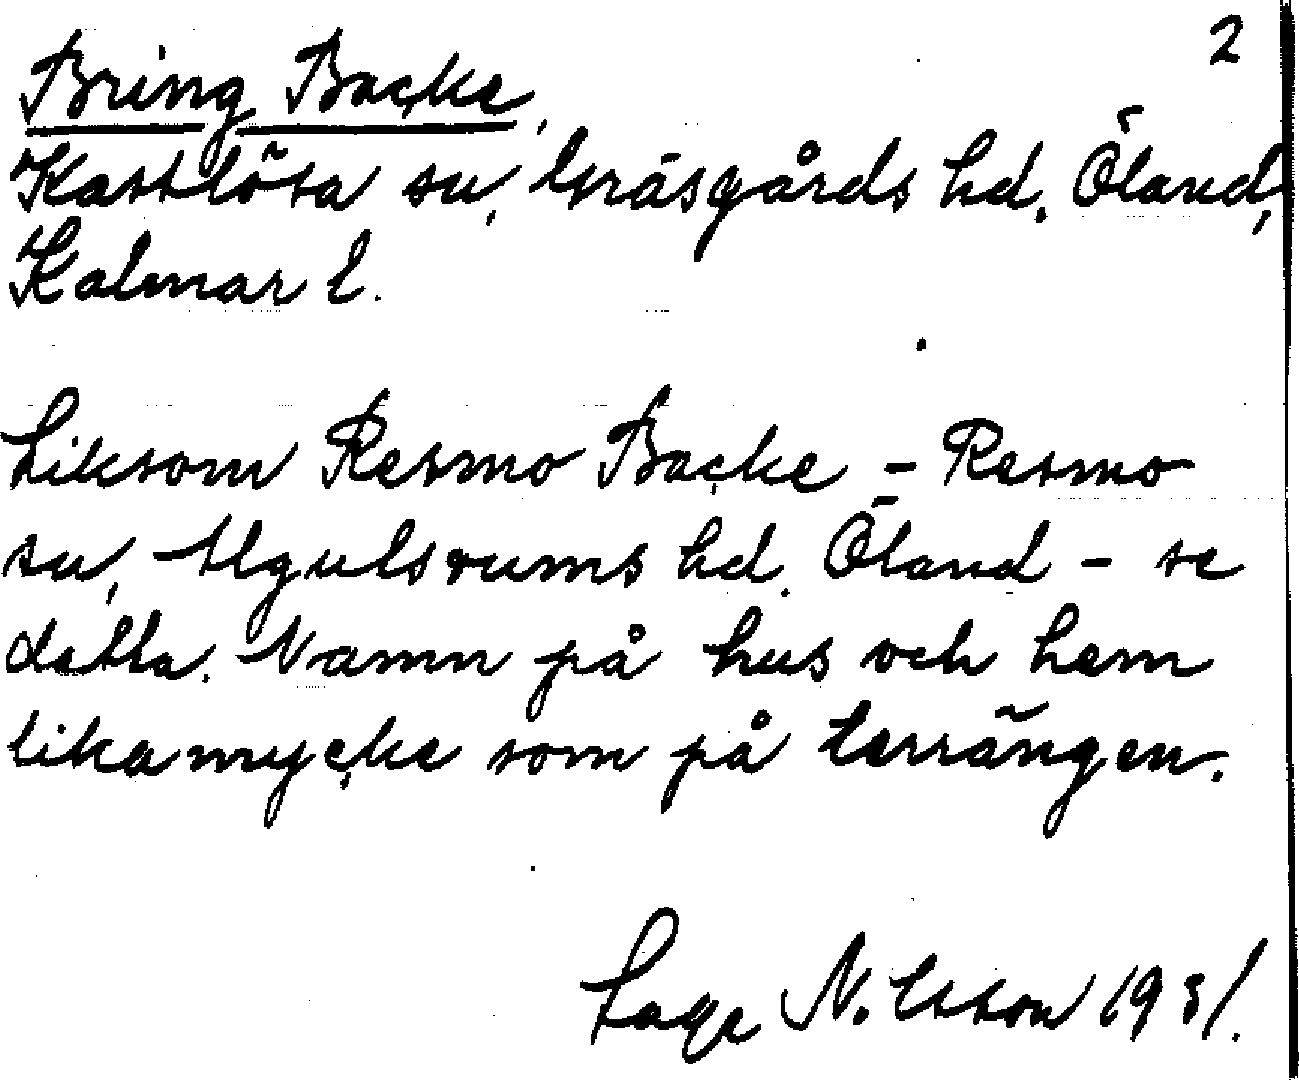 2
Bring Backe,
Kastlösa sn, Gräsgårds hd. Öland,
Kalmar l.
Liksom Resmo Backe – Resmo
sn, Algutsrums hd. Öland – se
detta. Namn på hus och hem
lika mycke som på terrängen.
Lage N. 1931.